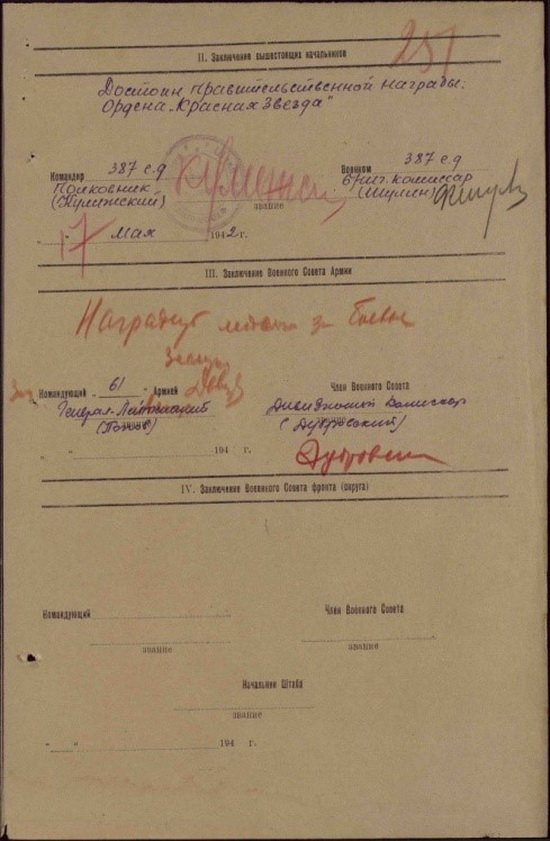 251
II. Заключение вышестоящих начальников
Достоин правительственной награды:
Ордена „Красная Звезда"
Командир 387 с.д
Военком 387 с.д
Полковник
бриг. комиссар
(Кулижский)
(Шулин)
звание
17 Мая 1942 г.
III. Заключение Военного Совета Армии
Наградить медалью за боевые
заслуги
Командующий 61 Армией
Член Военного Совета
Генерал-Лейтенант
Дивизионный Комиссар
(Попов)
(Дубровский)
„ " 194 г.
IV. Заключение Военного Совета фронта (округа)
Командующий
Член Военного Совета
звание
звание
Начальник Штаба
звание
„ " 194 г.